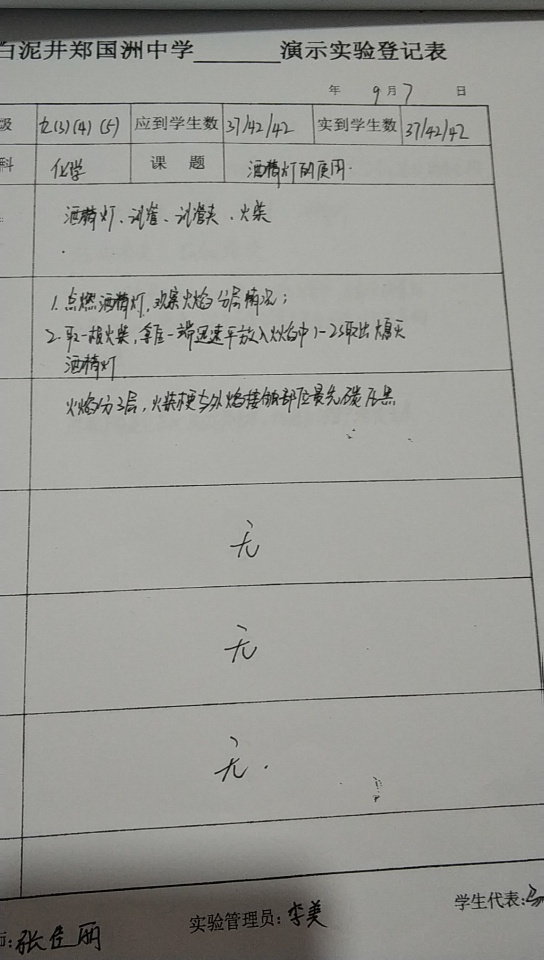 白泥井郑国洲中学______演示实验登记表
年 9月7 日
级 九(3)(4)(5) 应到学生数 37/42/42 实到学生数 37/42/42
科 化学 课题 酒精灯的使用.
酒精灯、试管、试管夹、火柴
1.点燃酒精灯,观察火焰分层情况;
2.取一根火柴,拿住一端迅速平放入火焰中1-2S取出熄灭
酒精灯
火焰分3层,火柴梗与外焰接触部位最先碳化黑
无
无
无.
学生代表:
实验管理员:李美
师:张佳丽